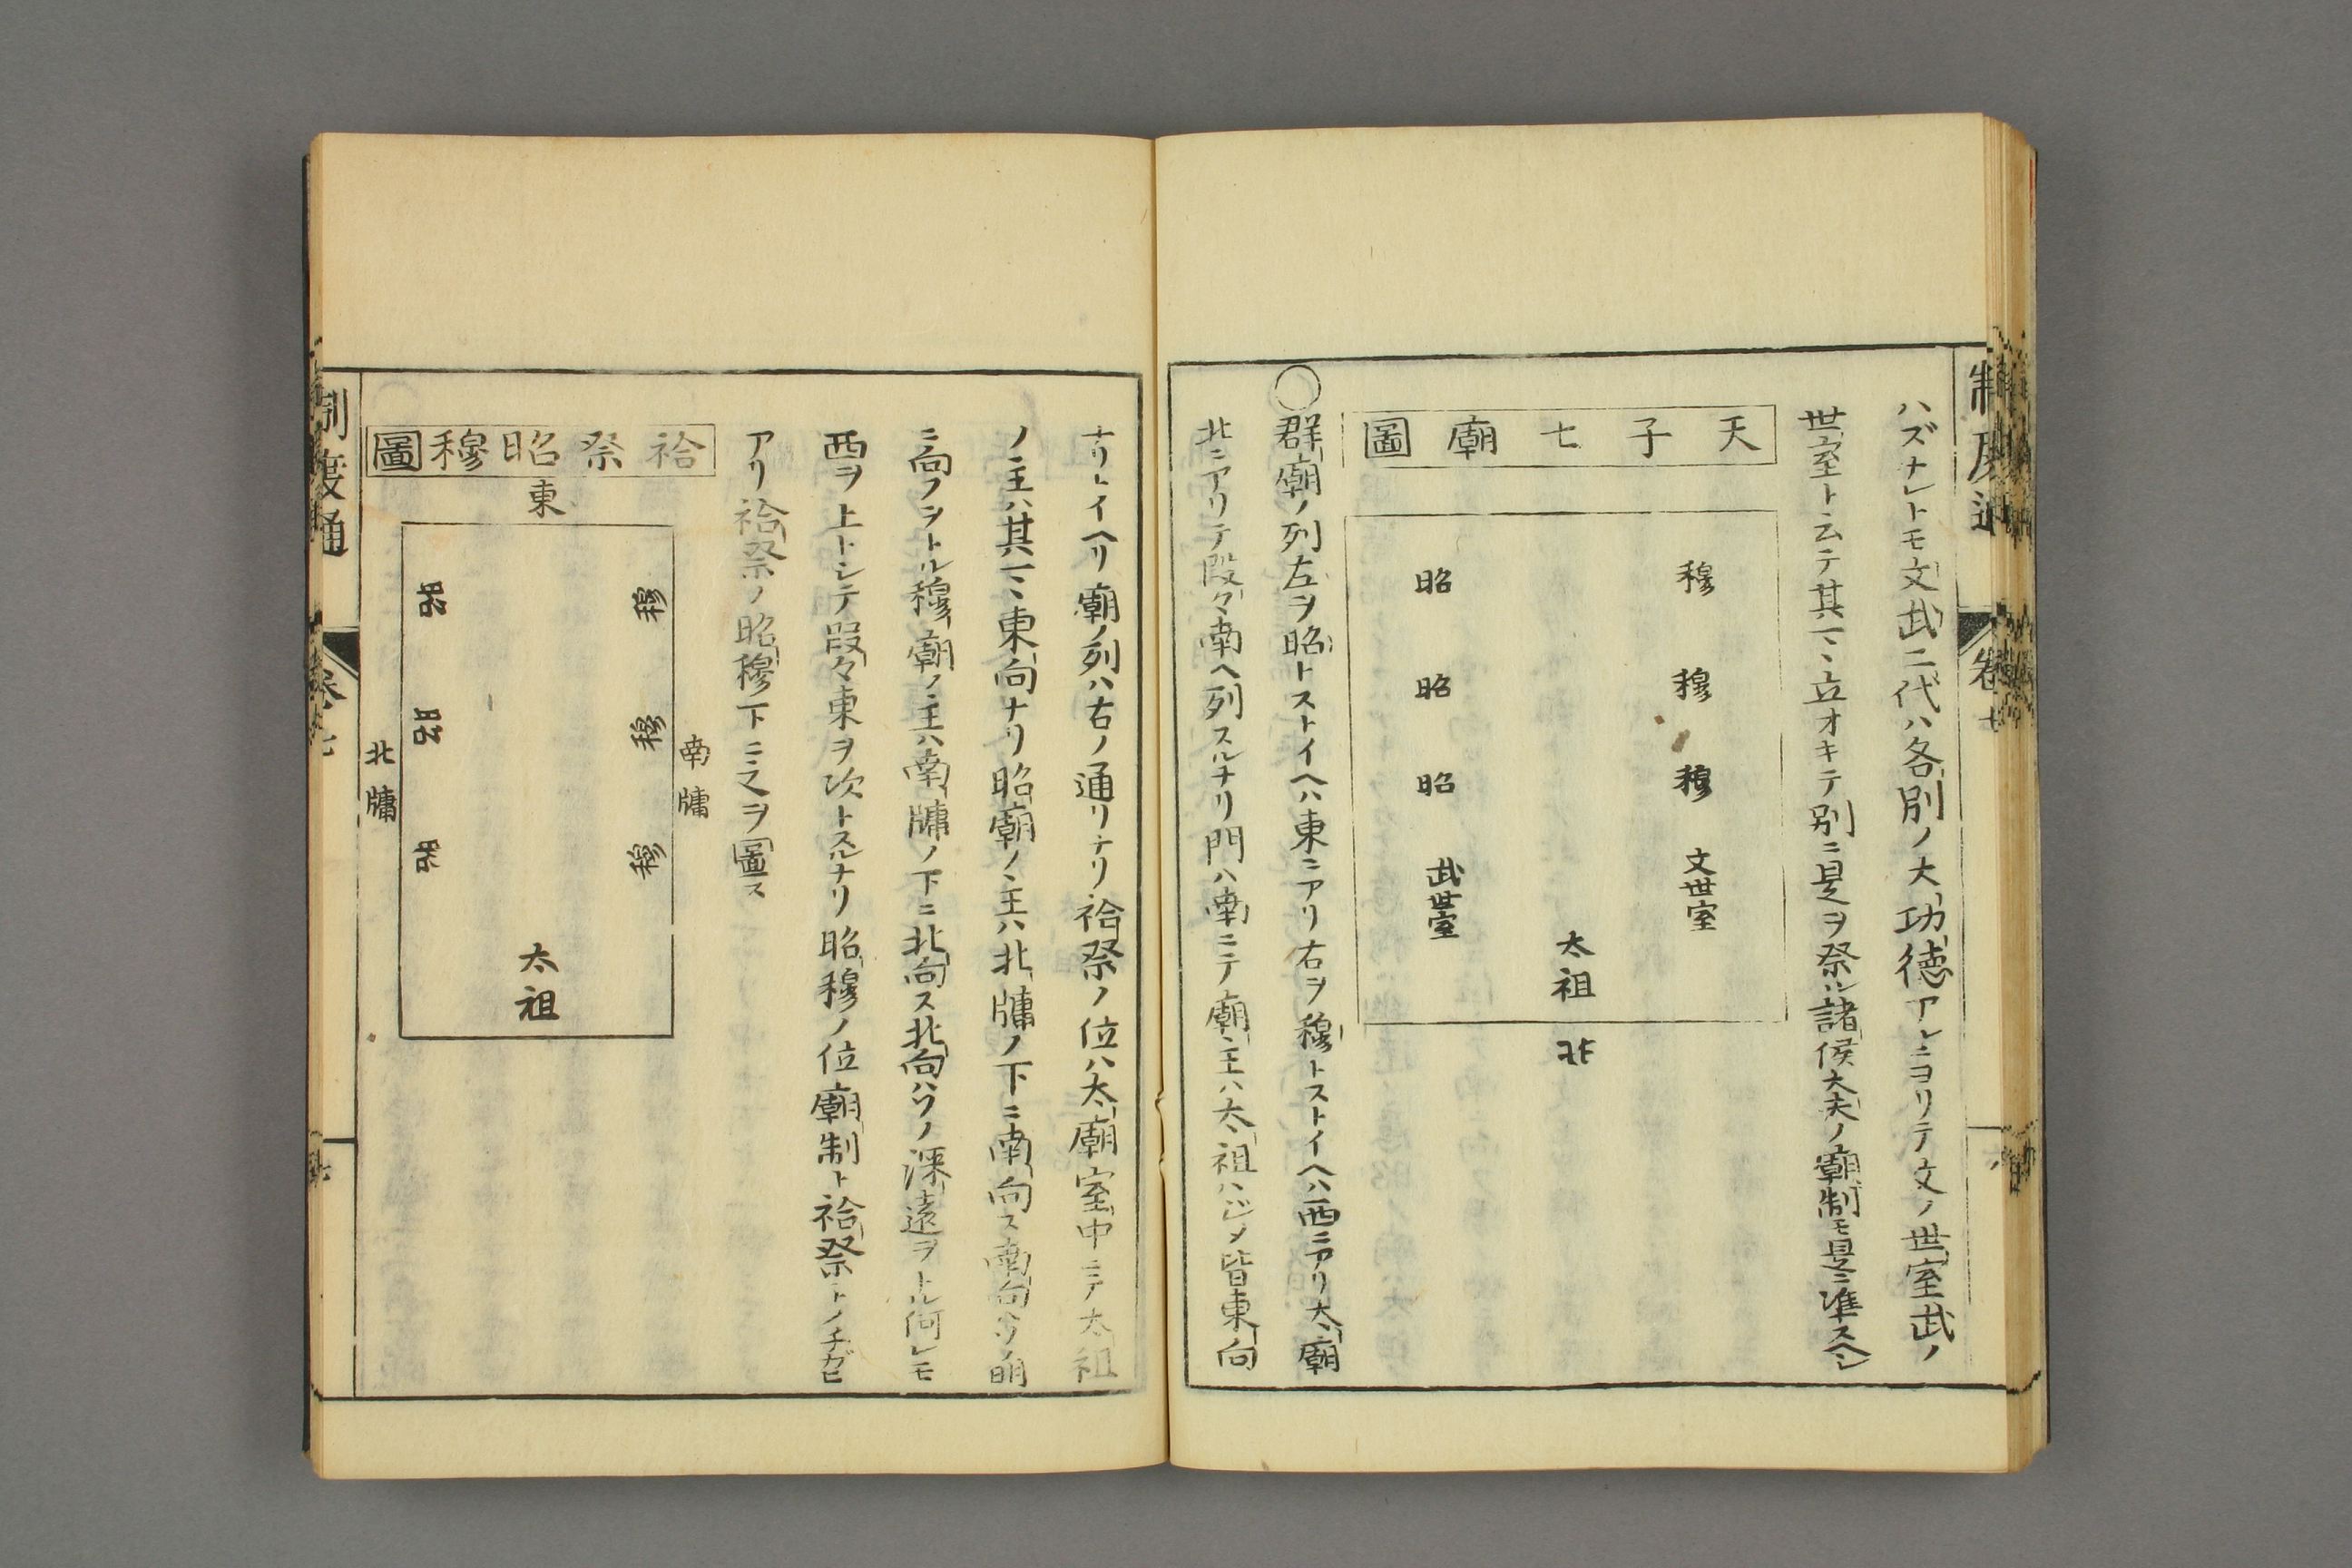 制度通
卷七
ハズナレトモ文武二代ハ各別ノ大功徳アルニヨリテ文ノ世室武ノ
世室ト云テ其一〻立オキテ別ニ是ヲ祭ル諸侯大夫ノ廟制モ是ニ準スヘシ
天子七廟圖
穆
穆
穆
文世室
太祖
北
昭
昭
昭
武世室
○群廟ノ列左ヲ昭トストイヘハ東ニアリ右ヲ穆トストイヘハ西ニアリ太廟
北ニアリテ段々南ヘ列スルナリ門ハ南ニテ廟主ハ太祖ハジメ皆東向
ナリトイヘリ廟ノ列ハ右ノ通リナリ祫祭ノ位ハ太廟室中ニテ太祖
ノ主ハ其一〻東向ナリ昭廟ノ主ハ北牗ノ下ニ南向ス南向ハソノ明
ニ向フヲトル穆廟ノ主ハ南牗ノ下ニ北向ス北向ハソノ深遠ヲトル何レモ
西ヲ上トシテ段々東ヲ次トスルナリ昭穆ノ位廟制ト祫祭トノチガヒ
アリ祫祭ノ昭穆下ニ之ヲ圖ス
祫祭昭穆圖
東
南牗
穆
穆
穆
太祖
昭
昭
昭
北牗
制度通
卷七